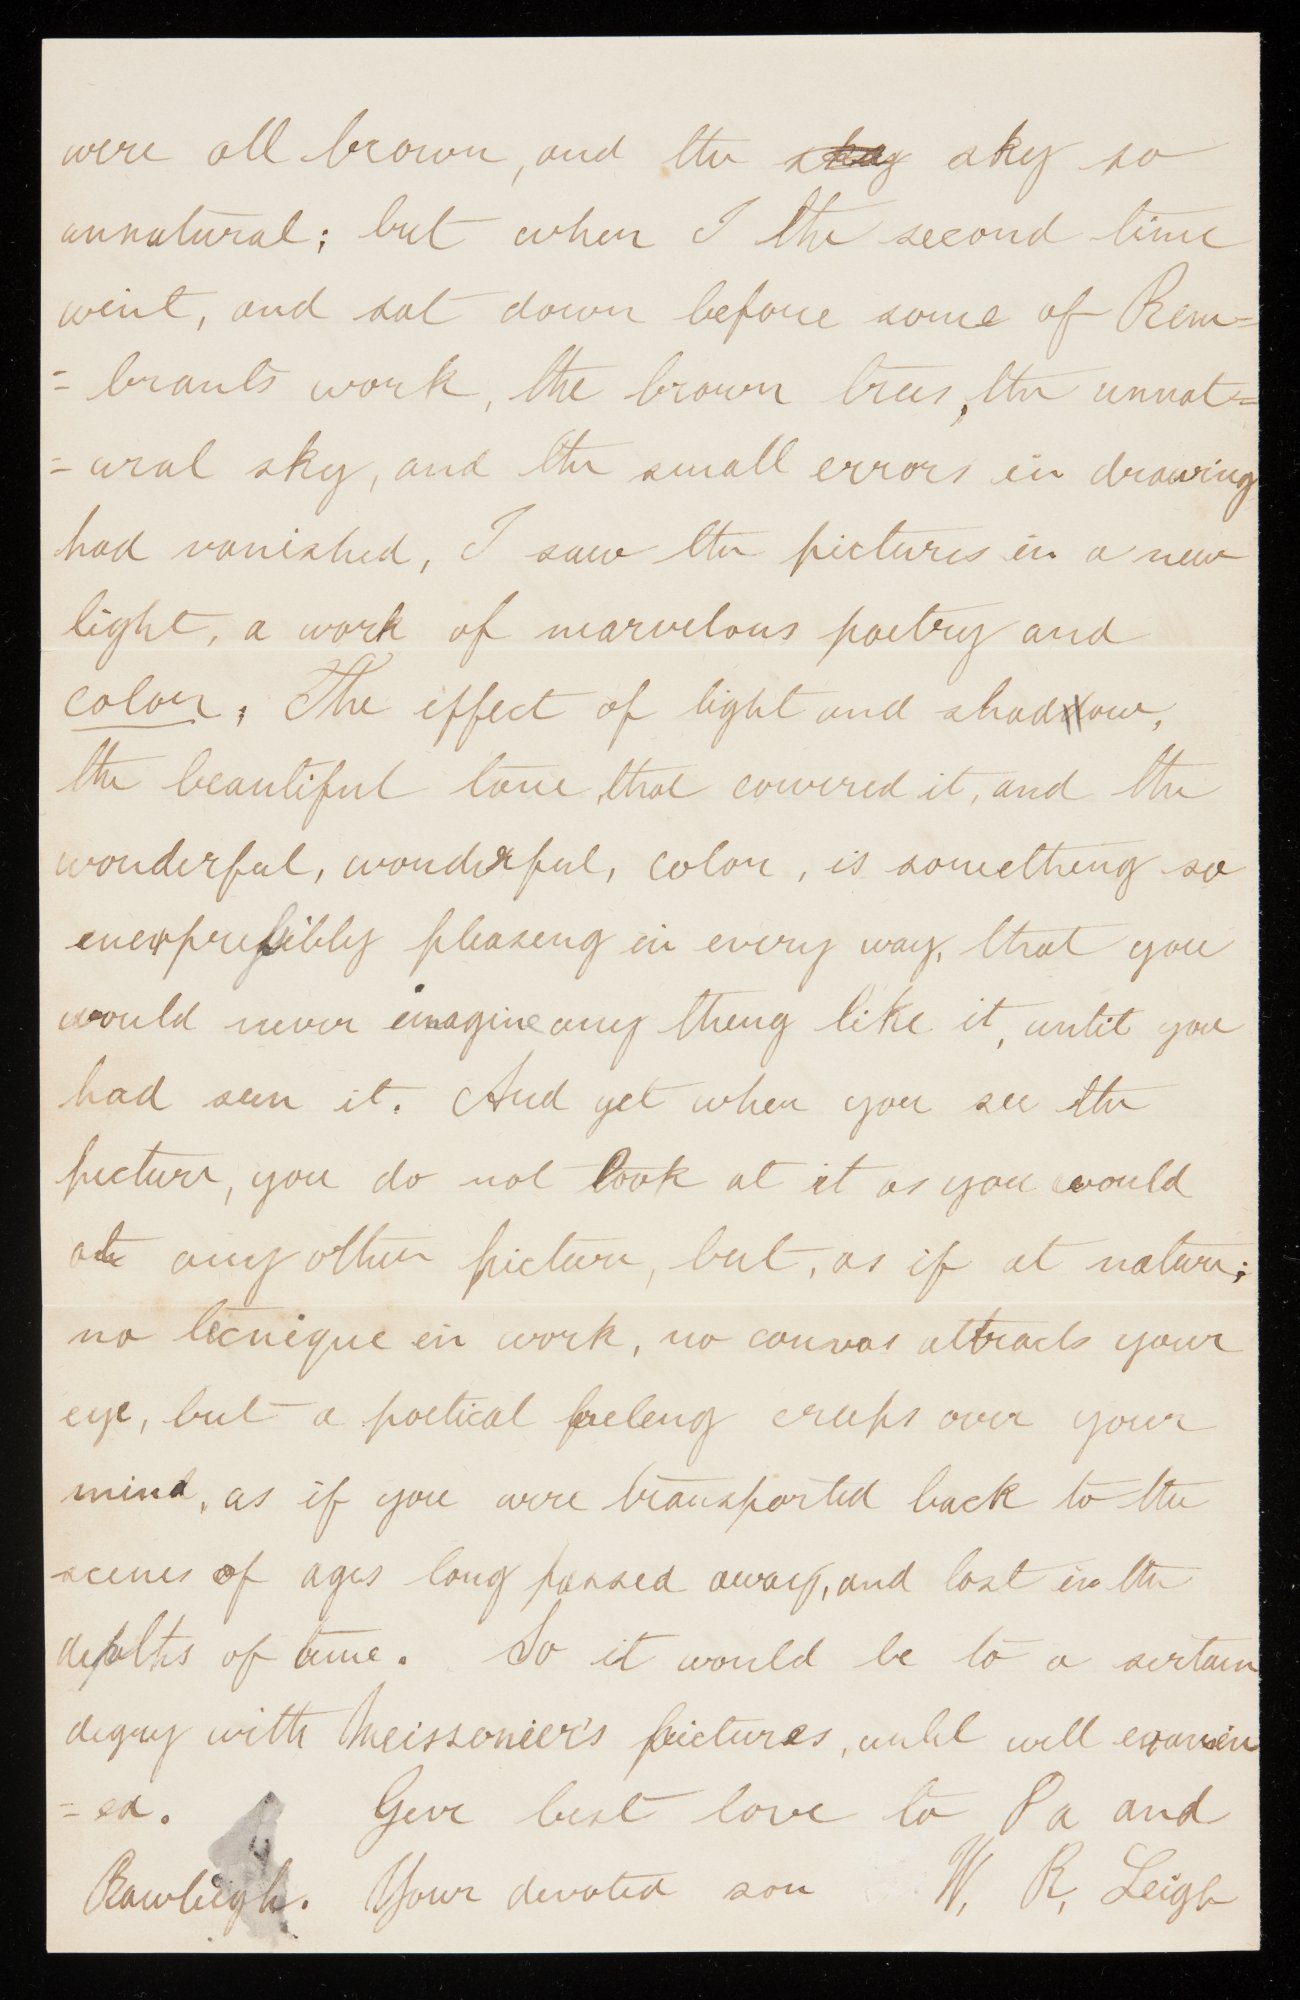 were all brown, and the skay sky so
unnatural; but when I the second time
went, and sat down before some of Rem=
= brants work, the brown trees, the unnat=
= ural sky, and the small errors in drawing
had vanished, I saw the pictures in a new
light, a work of marvelous poetry and
color. The effect of light and shadow,
the beautiful tone, that cowered it, and the
wonderful, wonderful, color, is something so
inexpressibly pleasing in every way, that you
would never imagine any thing like it, until you
had seen it. And yet when you see the
picture, you do not look at it as you would
at any other picture, but, as if at nature;
no tecnique in work, no canvas attracts your
eye, but a poetical feeling creeps over your
mind, as if you were transported back to the
scenes of ages long passed away, and lost in the
dephths of time. So it would be to a sertain
degry with Meissonier's pictures, until well examin
= ed. Give best love to Pa and
Rawleigh. Your devoted son W. R. Leigh